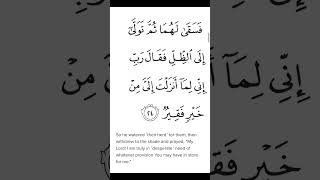 فَسَقَىٰ لَهُمَا ثُمَّ تَوَلَّىٰٓ
إِلَى ٱلظِّلِّ فَقَالَ رَبِّ
إِنِّى لِمَآ أَنزَلْتَ إِلَىَّ مِنْ
خَيْرٍ فَقِيرٌ ٢٤
So he watered ˹their herd˺ for them, then
withdrew to the shade and prayed, “My
Lord! I am truly in ˹desperate˺ need of
whatever provision You may have in store
for me.”